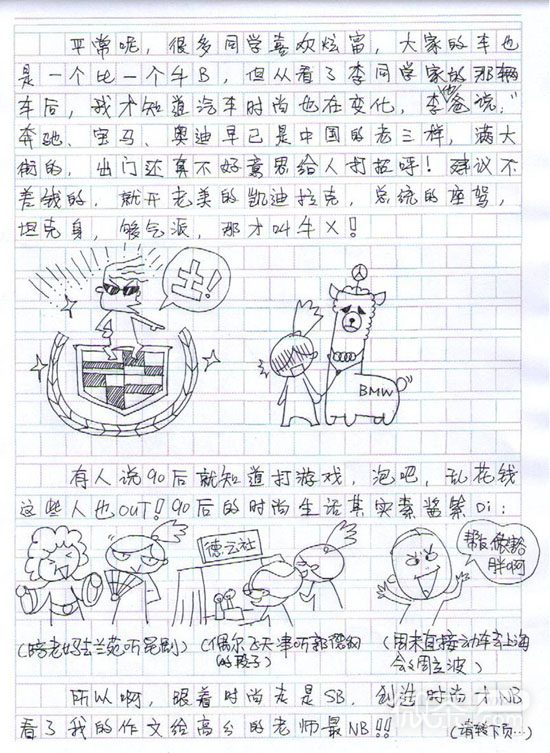 平常呢，很多同学喜欢炫富，大家的车也
是一个比一个牛B，但从看了李同学家的那辆
车后，我才知道汽车时尚也在变化，李他爸说："
奔驰、宝马、奥迪早已是中国的老三样，满大
街的，出门还真不好意思给人打招呼！建议不
差钱的，就开老美的凯迪拉克，总统的座驾，
坦克身，够气派，那才叫牛X！
土！
BMW
有人说90后就知道打游戏，泡吧，乱花钱
这些人也OUT！90后的时尚生活其实素酱紫Di：
德云社
帮我做
胖啊
(陪老妈去兰苑听昆剧)
(偶尔飞天津听郭德纲
的段子)
(周末直接动车去上海
会会周立波)
所以啊，跟着时尚走是SB，创造时尚才NB
看了我的作文给高分的老师最NB!!
(请转下页…)